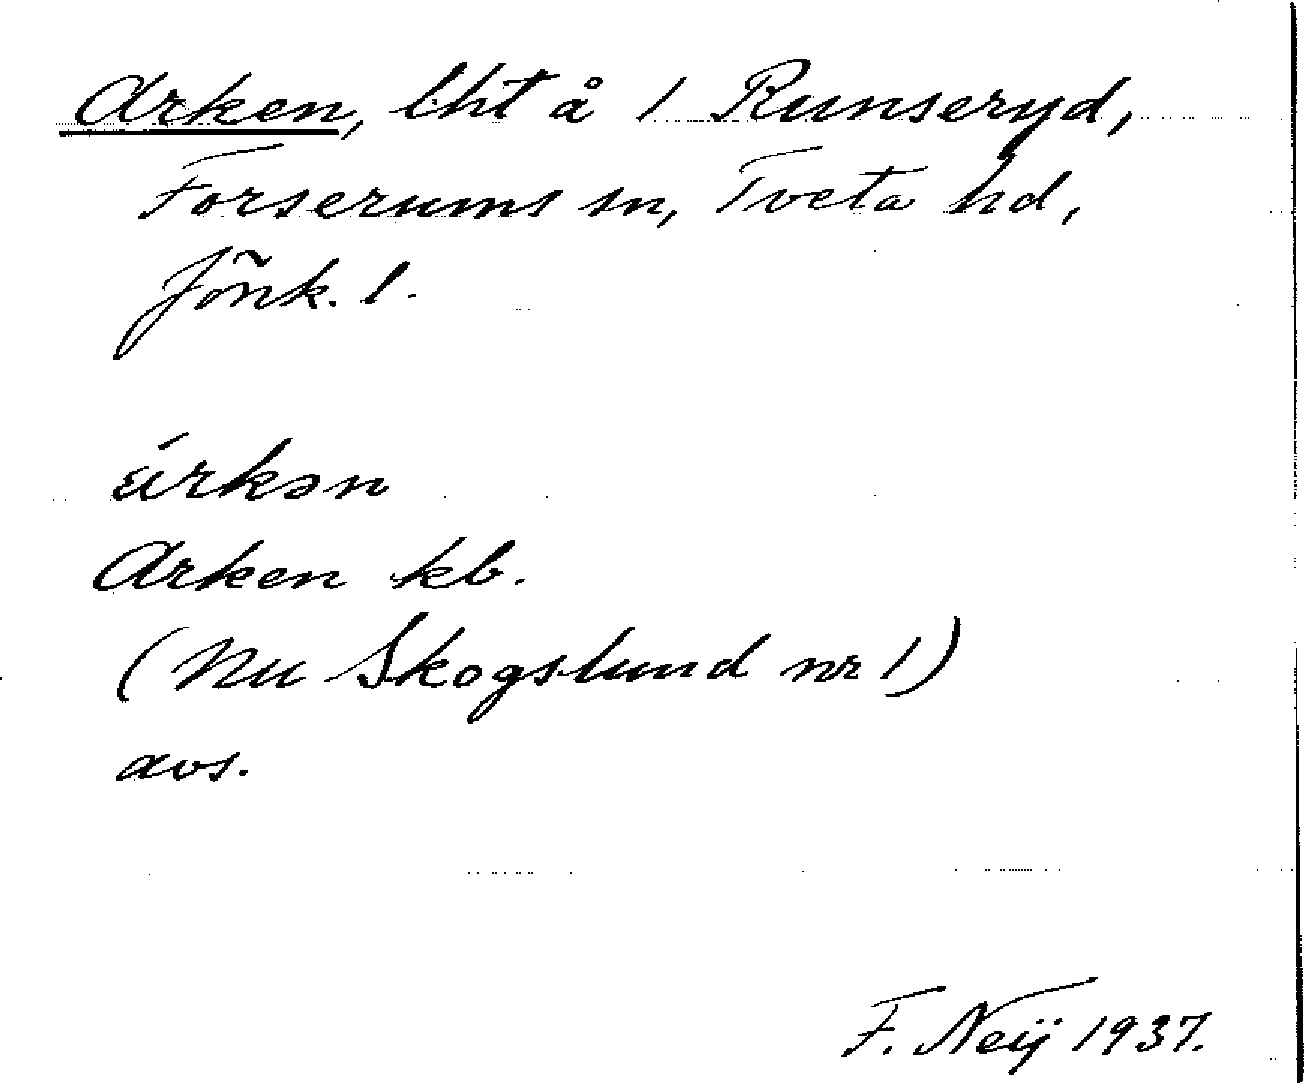 Arken, lht å 1 Runseryd,
Forserums sn, Tveta hd,
Jönk. l.
árkən
Arken kb.
(Nu Skogslund nr 1)
avs.
F. Neij 1937.